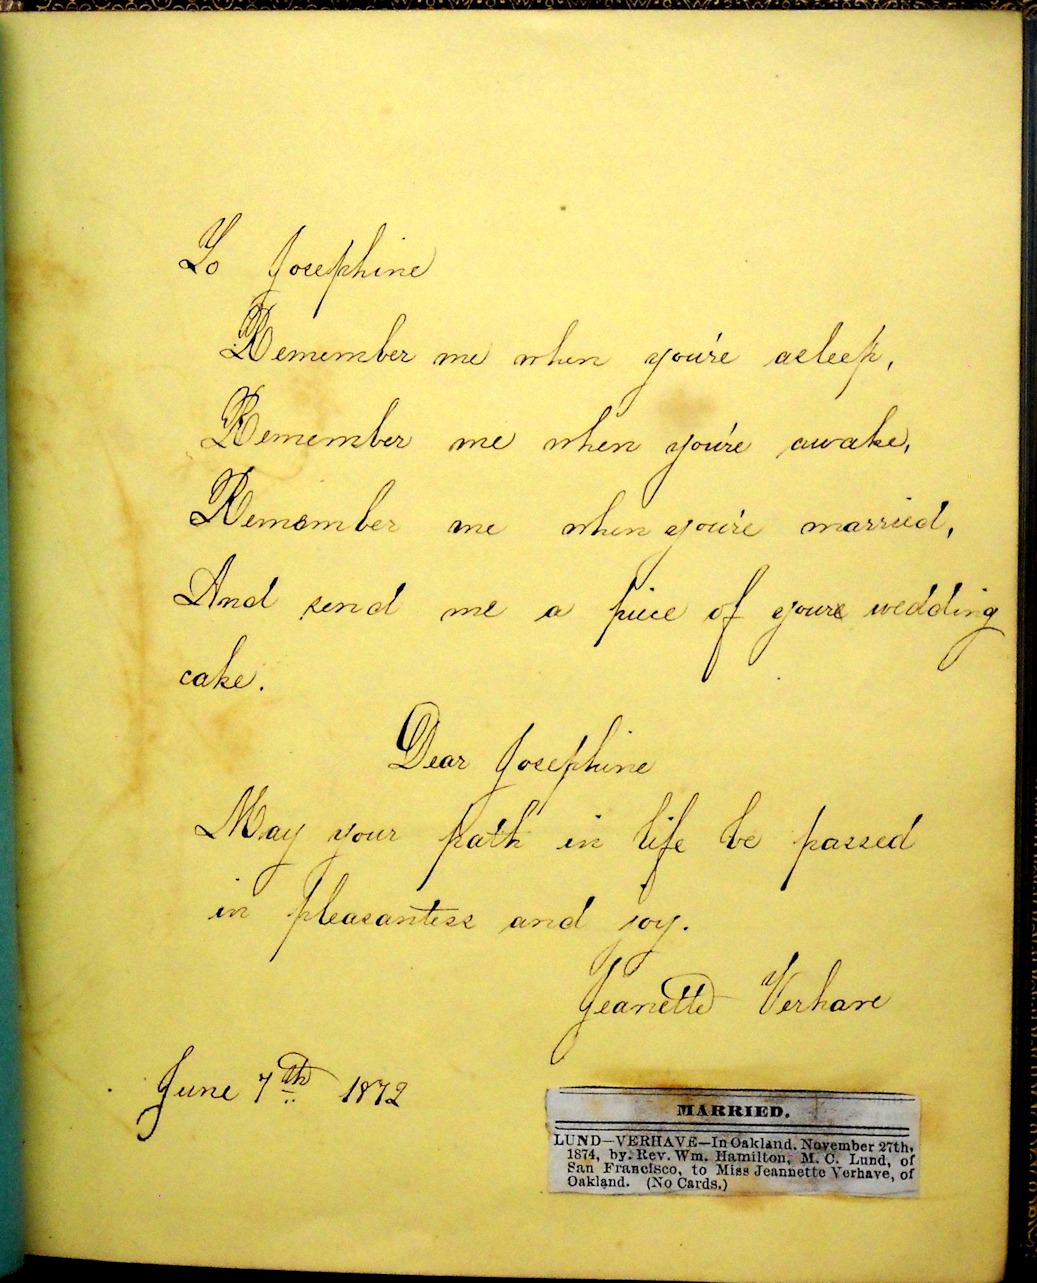 To Josephine
Remember me when you're asleep,
Remember me when you're awake,
Remember me when you're married,
And send me a piece of your wedding
cake.
Dear Josephine
May your path in life be passed
in pleasantess and joy.
Jeanette Verhave
June 7th 1872
MARRIED.
LUND—VERHAVE—In Oakland, November 27th,
1874, by Rev. Wm. Hamilton, M. C. Lund, of
San Francisco, to Miss Jeannette Verhave, of
Oakland. (No Cards.)